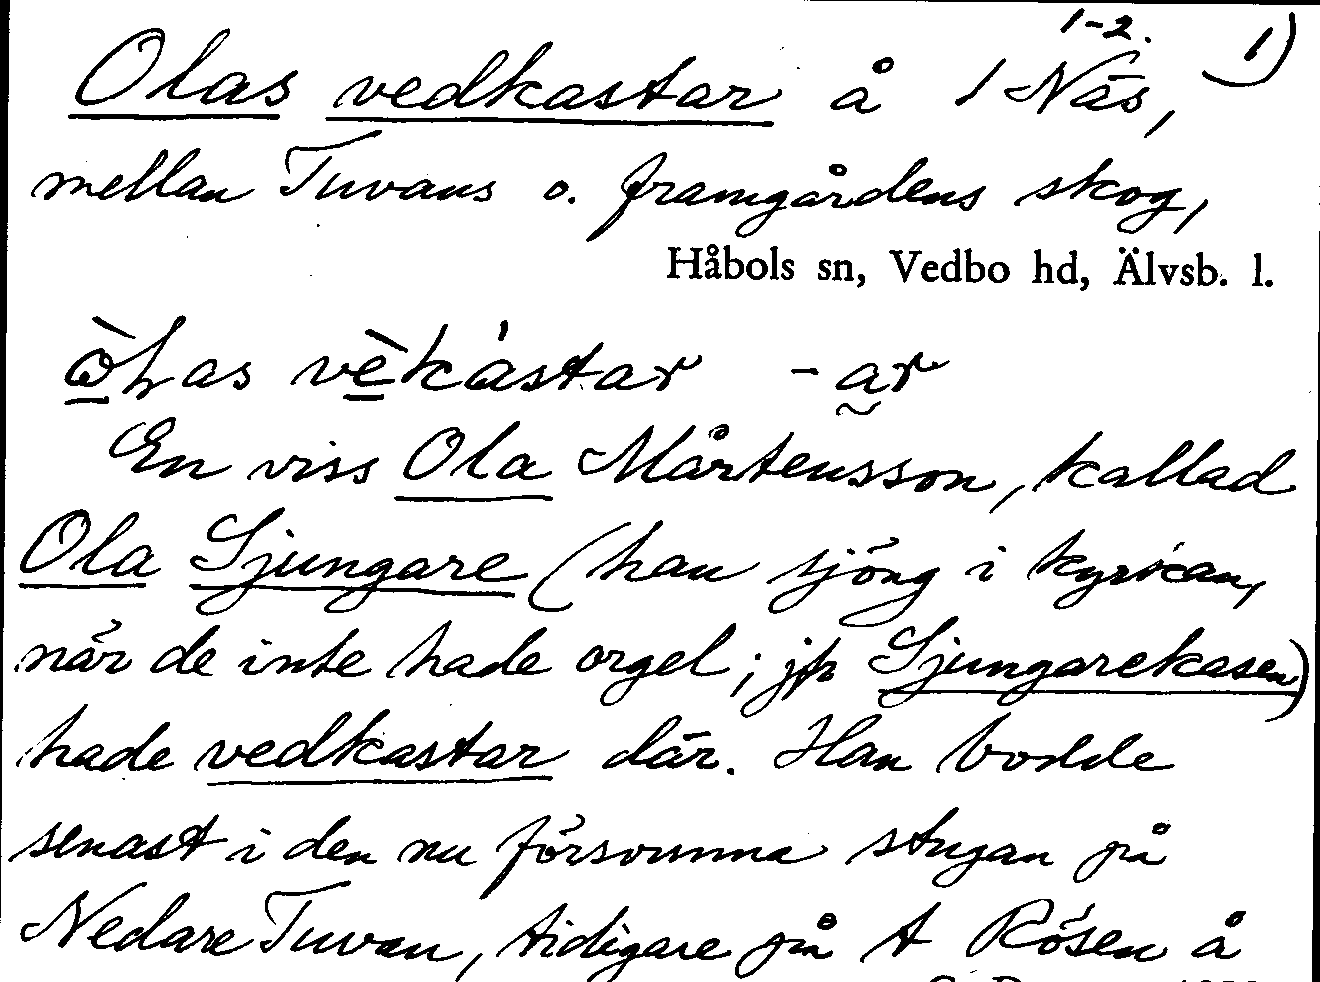 1-2. 1)
Olas vedkastar å 1 Näs,
mellan Tuvans o. framgårdens skog,
Håbols sn, Vedbo hd, Älvsb. l.
vèkástar -ar
En viss Ola Mårtensson, kallad
Ola Sjungare (han sjöng i kyrkan,
når de inte hade orgel; jfr Sjungarekasen)
hade vedkastar där. Han bodde
senast i den nu försvunna stugan på
Nedare Tuvan, tidigare på t Rösen å